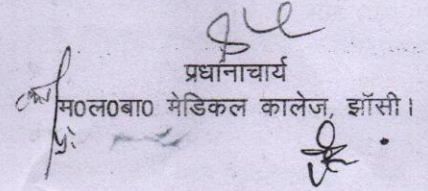 प्रधानाचार्य
म0ल0बा0 मेडिकल कालेज, झॉसी।